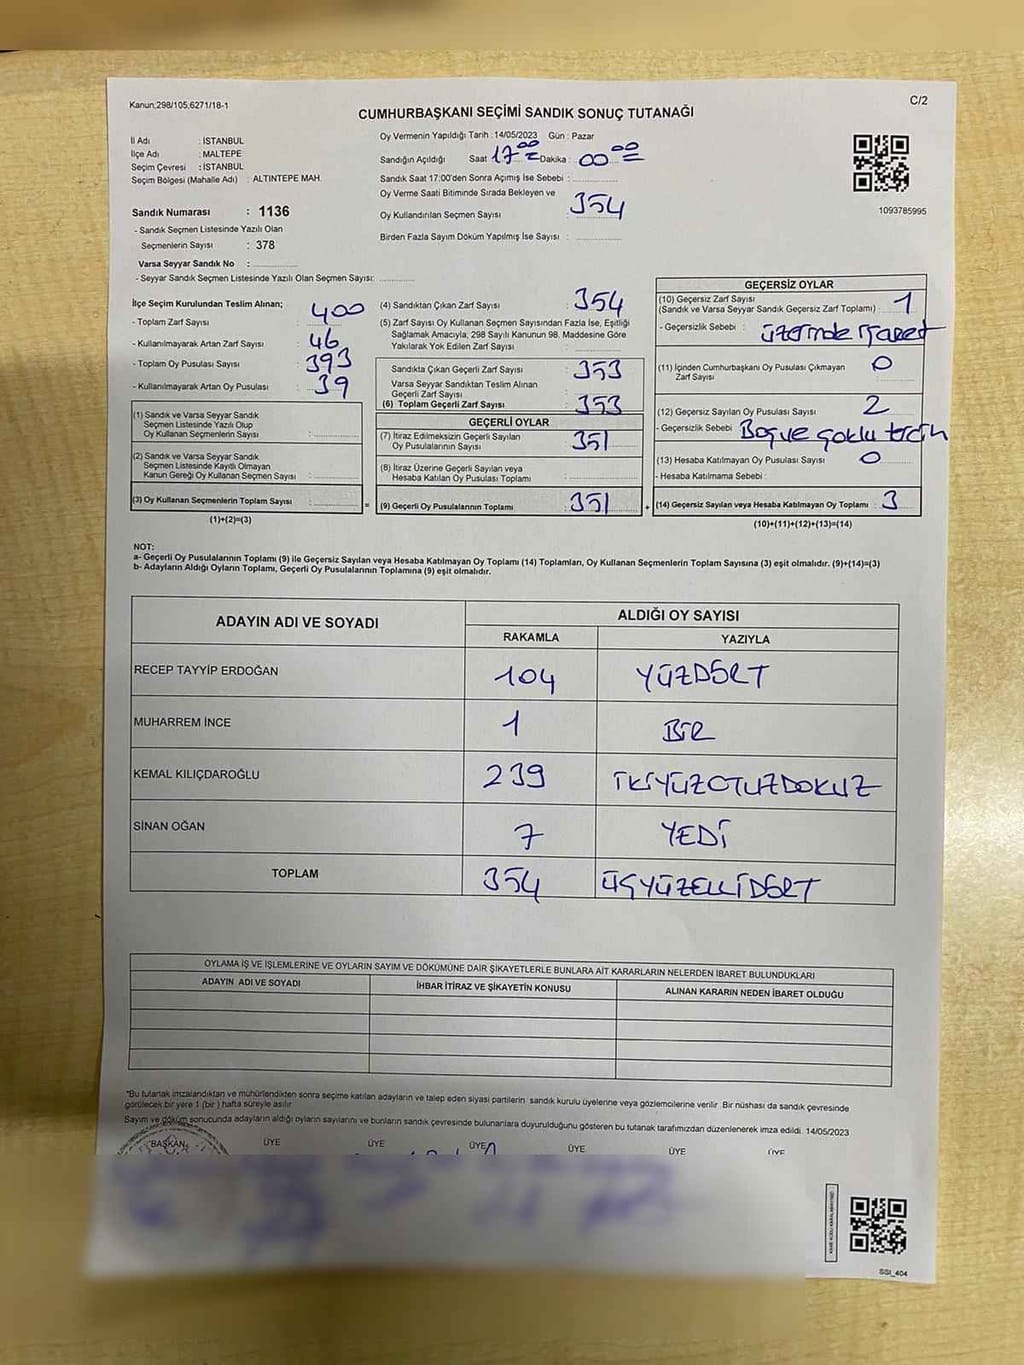 Kanun;298/105,6271/18-1
C/2
CUMHURBAŞKANI SEÇİMİ SANDIK SONUÇ TUTANAĞI
İl Adı : İSTANBUL
İlçe Adı : MALTEPE
Seçim Çevresi : İSTANBUL
Seçim Bölgesi (Mahalle Adı) : ALTINTEPE MAH.
Sandık Numarası : 1136
- Sandık Seçmen Listesinde Yazılı Olan
Seçmenlerin Sayısı : 378
Varsa Seyyar Sandık No :
- Seyyar Sandık Seçmen Listesinde Yazılı Olan Seçmen Sayısı:
Oy Vermenin Yapıldığı Tarih : 14/05/2023 Gün : Pazar
Sandığın Açıldığı Saat 17 00 Dakika : 00 00
Sandık Saat 17:00'den Sonra Açımış İse Sebebi :
Oy Verme Saati Bitiminde Sırada Bekleyen ve
Oy Kullandırılan Seçmen Sayısı : 354
Birden Fazla Sayım Döküm Yapılmış İse Sayısı :
1093785995
İlçe Seçim Kurulundan Teslim Alınan;
- Toplam Zarf Sayısı : 400
- Kullanılmayarak Artan Zarf Sayısı : 46
- Toplam Oy Pusulası Sayısı : 393
- Kullanılmayarak Artan Oy Pusulası : 39
(1) Sandık ve Varsa Seyyar Sandık
Seçmen Listesinde Yazılı Olup
Oy Kullanan Seçmenlerin Sayısı :
(2) Sandık ve Varsa Seyyar Sandık
Seçmen Listesinde Kayıtlı Olmayan
Kanun Gereği Oy Kullanan Seçmen Sayısı :
(3) Oy Kullanan Seçmenlerin Toplam Sayısı :
(1)+(2)=(3)
=
(4) Sandıktan Çıkan Zarf Sayısı : 354
(5) Zarf Sayısı Oy Kullanan Seçmen Sayısından Fazla İse, Eşitliği
Sağlamak Amacıyla, 298 Sayılı Kanunun 98. Maddesine Göre
Yakılarak Yok Edilen Zarf Sayısı :
Sandıkta Çıkan Geçerli Zarf Sayısı : 353
Varsa Seyyar Sandıktan Teslim Alınan
Geçerli Zarf Sayısı :
(6) Toplam Geçerli Zarf Sayısı : 353
GEÇERLİ OYLAR
(7) İtiraz Edilmeksizin Geçerli Sayılan
Oy Pusulalarının Sayısı : 351
(8) İtiraz Üzerine Geçerli Sayılan veya
Hesaba Katılan Oy Pusulası Toplamı :
(9) Geçerli Oy Pusulalarının Toplamı : 351
+
GEÇERSİZ OYLAR
(10) Geçersiz Zarf Sayısı
(Sandık ve Varsa Seyyar Sandık Geçersiz Zarf Toplamı) : 1
- Geçersizlik Sebebi : üzerinde işaret
(11) İçinden Cumhurbaşkanı Oy Pusulası Çıkmayan
Zarf Sayısı : 0
(12) Geçersiz Sayılan Oy Pusulası Sayısı : 2
- Geçersizlik Sebebi : Boş ve çoklu tercih
(13) Hesaba Katılmayan Oy Pusulası Sayısı : 0
- Hesaba Katılmama Sebebi :
(14) Geçersiz Sayılan veya Hesaba Katılmayan Oy Toplamı : 3
(10)+(11)+(12)+(13)=(14)
NOT:
a- Geçerli Oy Pusulalarının Toplamı (9) ile Geçersiz Sayılan veya Hesaba Katılmayan Oy Toplamı (14) Toplamları, Oy Kullanan Seçmenlerin Toplam Sayısına (3) eşit olmalıdır. (9)+(14)=(3)
b- Adayların Aldığı Oyların Toplamı, Geçerli Oy Pusulalarının Toplamına (9) eşit olmalıdır.
ADAYIN ADI VE SOYADI ALDIĞI OY SAYISI
RAKAMLA YAZIYLA
RECEP TAYYİP ERDOĞAN 104 YÜZDÖRT
MUHARREM İNCE 1 BİR
KEMAL KILIÇDAROĞLU 239 İKİYÜZOTUZDOKUZ
SİNAN OĞAN 7 YEDİ
TOPLAM 354 ÜÇYÜZELLİDÖRT
OYLAMA İŞ VE İŞLEMLERİNE VE OYLARIN SAYIM VE DÖKÜMÜNE DAİR ŞİKAYETLERLE BUNLARA AİT KARARLARIN NELERDEN İBARET BULUNDUKLARI
ADAYIN ADI VE SOYADI İHBAR İTİRAZ VE ŞİKAYETİN KONUSU ALINAN KARARIN NEDEN İBARET OLDUĞU
*Bu tutanak imzalandıktan ve mühürlendikten sonra seçime katılan adayların ve talep eden siyasi partilerin sandık kurulu üyelerine veya gözlemcilerine verilir. Bir nüshası da sandık çevresinde
görülecek bir yere 1 (bir) hafta süreyle asılır
Sayım ve döküm sonucunda adayların aldığı oyların sayılarını ve bunların sandık çevresinde bulunanlara duyurulduğunu gösteren bu tutanak tarafımızdan düzenlenerek imza edildi. 14/05/2023
BAŞKAN ÜYE ÜYE ÜYE ÜYE ÜYE ÜYE
SSI_404